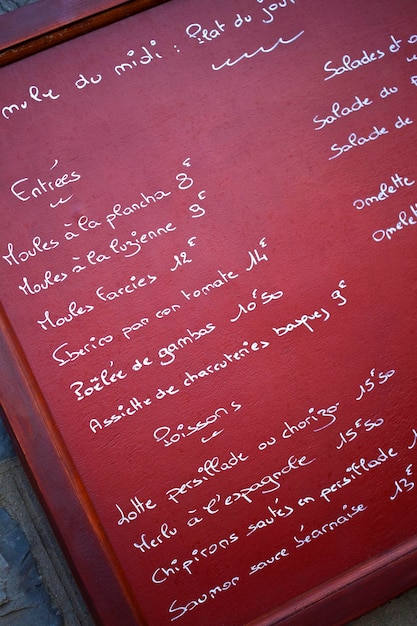 du midi : Plat du jour
Salades et
Salade du
Salade de
omelette
omelett
Entrées
Moules à la plancha 8€
Moules à la luzienne 9€
Moules farcies 12€
Iberico pan con tomate 14€
Poêlée de gambas 10€50
Assiette de charcuteries basques 9€
Poissons
Lotte persillade ou chorizo 15€50
Merlu à l'espagnole 15€50
Chipirons sautés en persillade 1
Saumon sauce béarnaise 13€